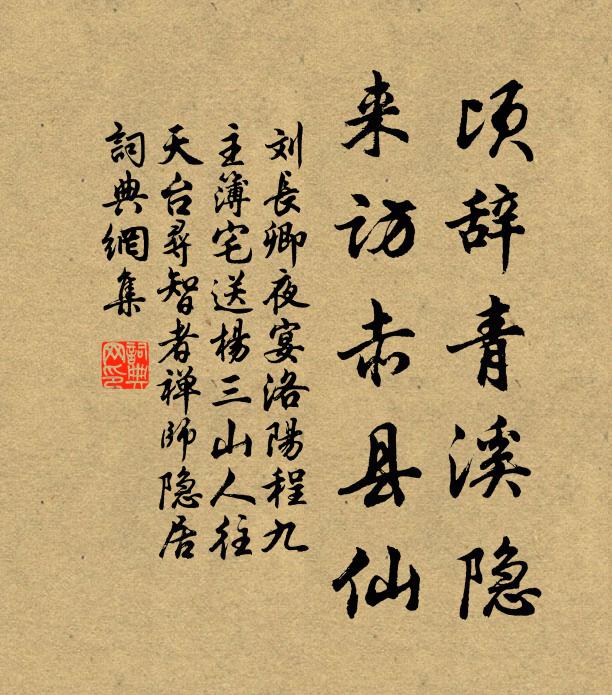 顷辞青溪隐
来访赤县仙
刘長卿夜宴洛陽程九
主簿宅送楊三山人往
天台尋智者禅师隐居
詞典網集
詞典網印